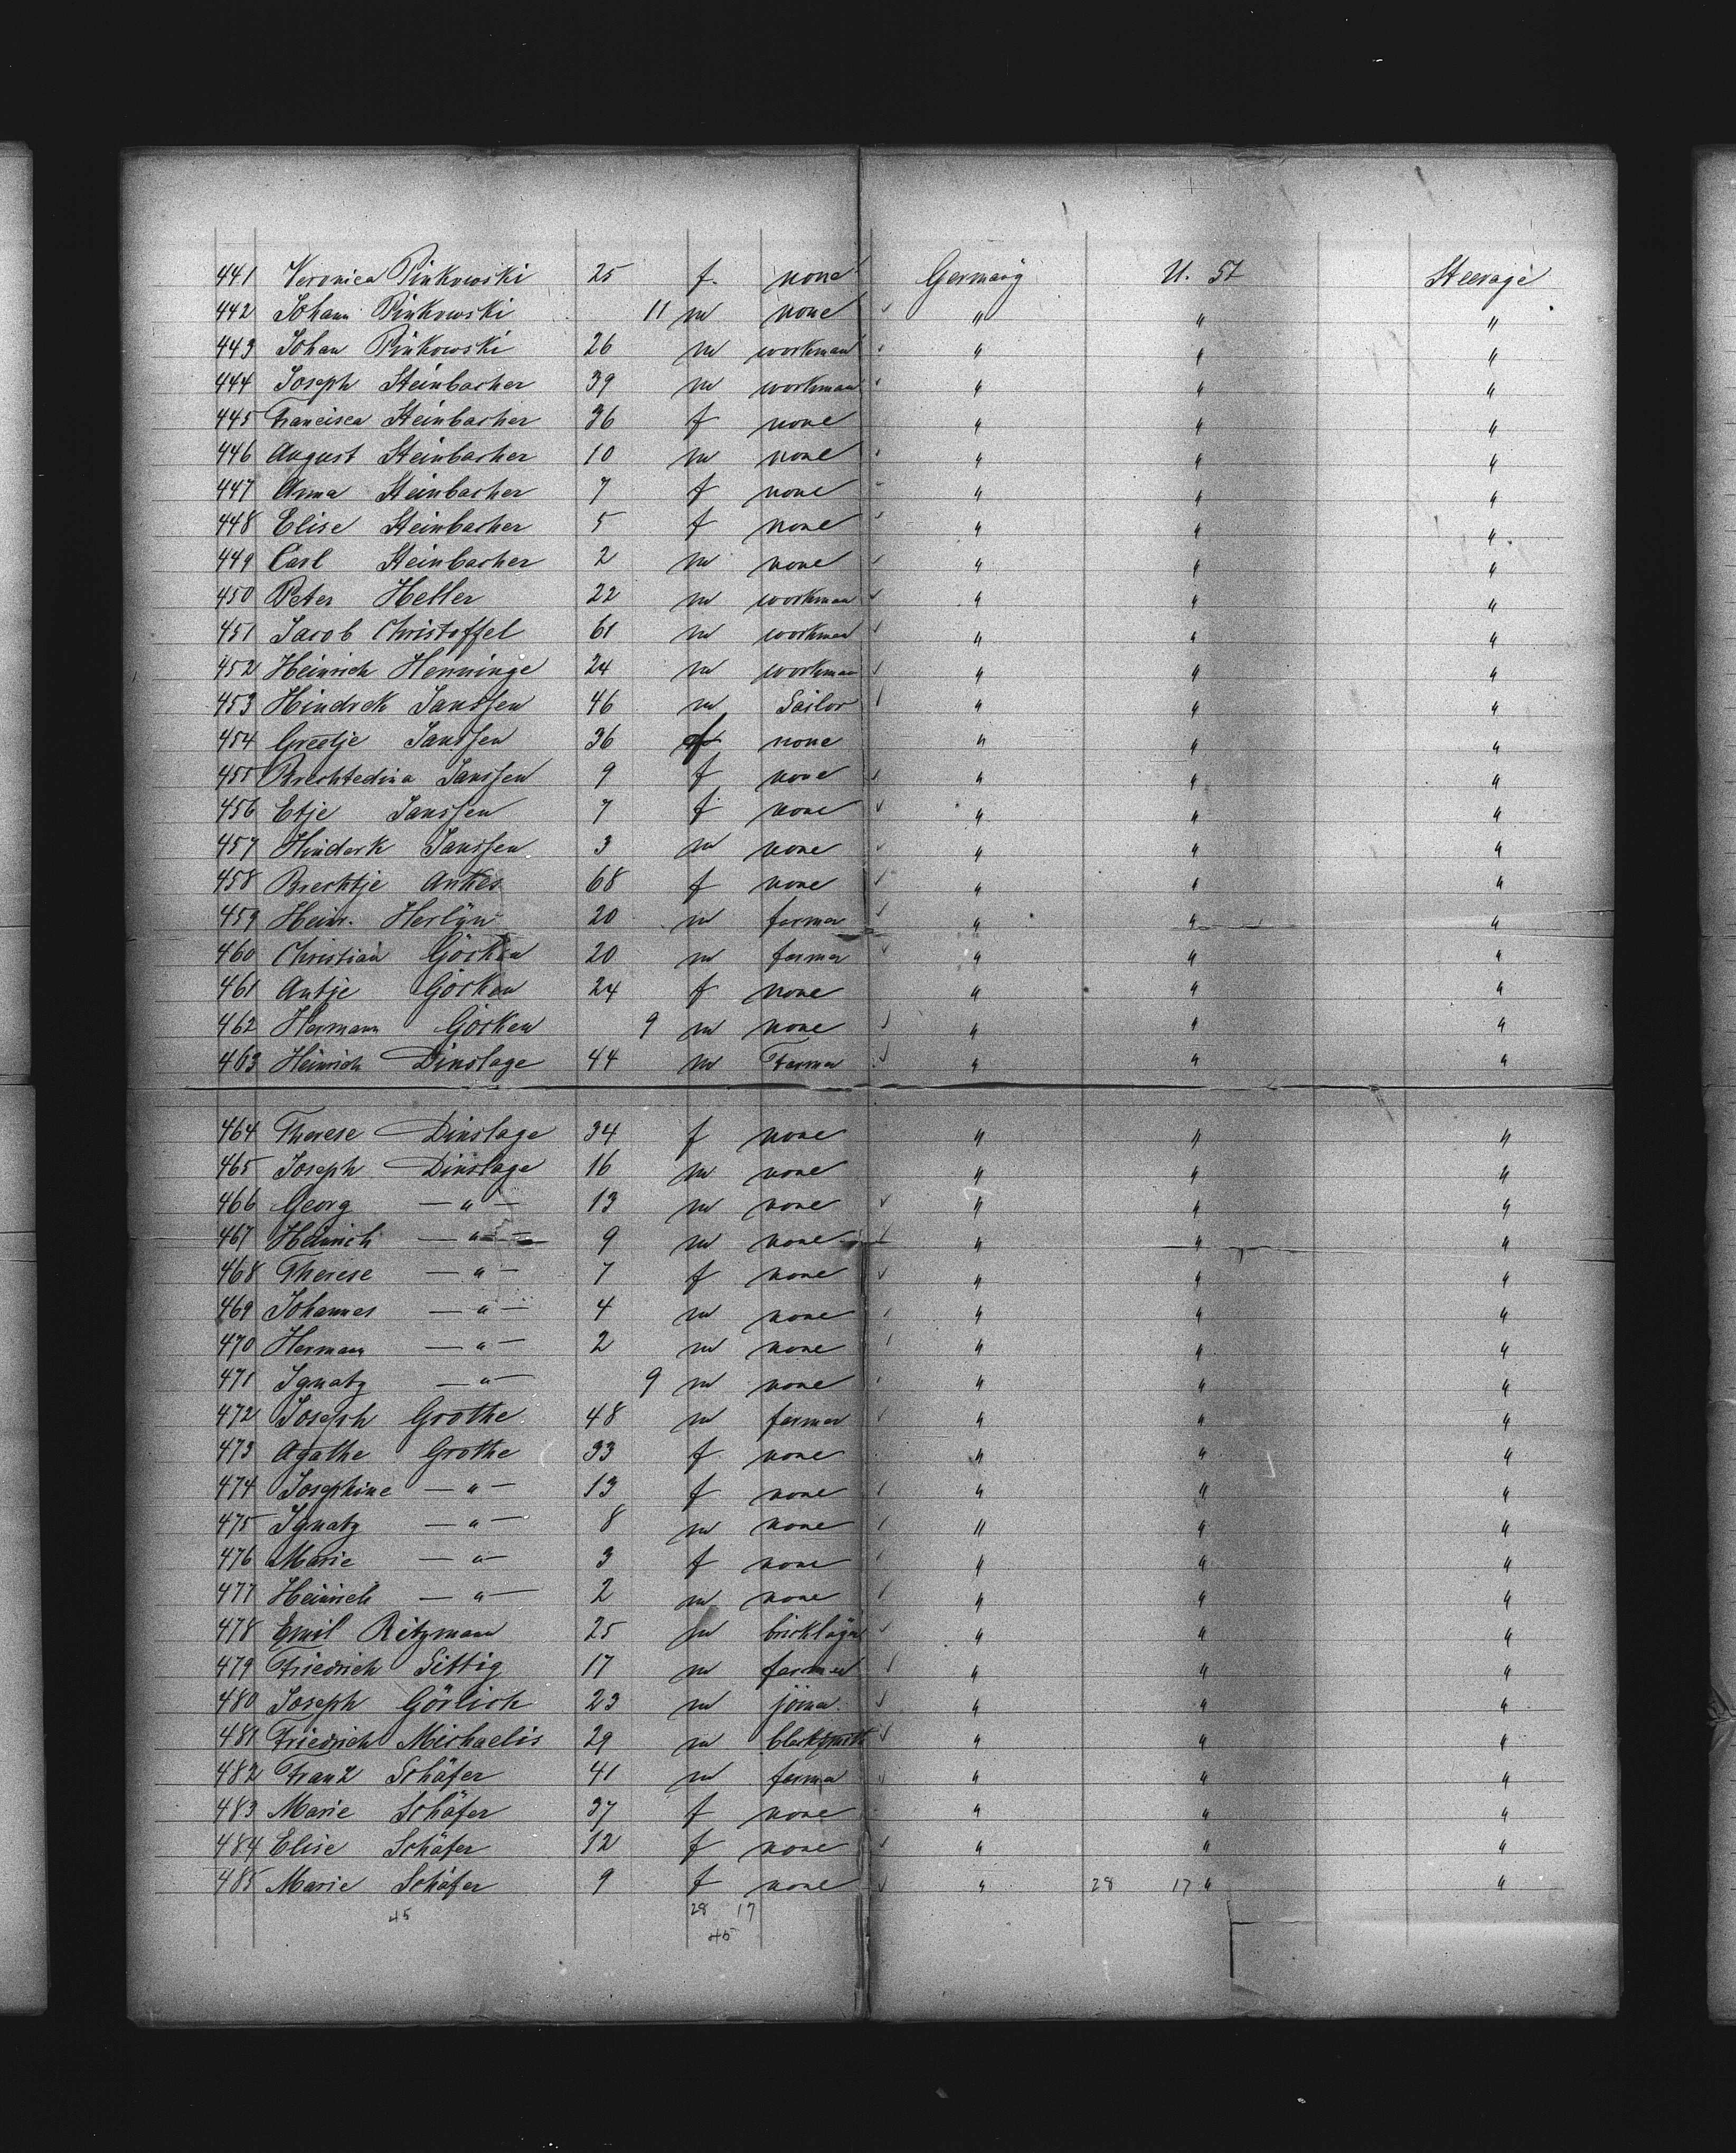 441 Veronica Pinkowski 25 f. none Germany U. St Steerage
442 Johann Pinkowski 11 m none " " "
443 Johan Pinkowski 26 m workman " " "
444 Joseph Steinbacher 39 m workman " " "
445 Francisca Steinbacher 36 f none " " "
446 August Steinbacher 10 m none " " "
447 Anna Steinbacher 7 f none " " "
448 Elise Steinbacher 5 f none " " "
449 Carl Steinbacher 2 m none " " "
450 Peter Heller 22 m workman " " "
451 Jacob Christoffel 61 m workman " " "
452 Heinrich Henninge 24 m workman " " "
453 Hindrek Janssen 46 m Sailor " " "
454 Greetje Janssen 36 f none " " "
455 Brechtedina Janssen 9 f none " " "
456 Etje Janssen 7 f none " " "
457 Hinderk Janssen 3 m none " " "
458 Brechtje Antkes 68 f none " " "
459 Heinr. Herlÿn 20 m farmer " " "
460 Christian Göcken 20 m farmer " " "
461 Antje Göcken 24 f none " " "
462 Hermann Göcken 9 m none " " "
463 Heinrich Dinslage 44 m Farmer " " "
464 Therese Dinslage 34 f none " " "
465 Joseph Dinslage 16 m none " " "
466 Georg — " — 13 m none " " "
467 Heinrich — " — 9 m none " " "
468 Therese — " — 7 f none " " "
469 Johannes — " — 4 m none " " "
470 Hermann — " — 2 m none " " "
471 Ignatz — " — 9 m none " " "
472 Joseph Grothe 48 m farmer " " "
473 Agathe Grothe 33 f none " " "
474 Josephine — " — 13 f none " " "
475 Ignatz — " — 8 m none " " "
476 Marie — " — 3 f none " " "
477 Heinrich — " — 2 m none " " "
478 Emil Ritzmann 25 m bricklayer " " "
479 Friedrich Sittig 17 m farmer " " "
480 Joseph Görlich 23 m joiner " " "
481 Friedrich Michaelis 29 m blacksmith " " "
482 Franz Schäfer 41 m farmer " " "
483 Marie Schäfer 37 f none " " "
484 Elise Schäfer 12 f none " " "
485 Marie Schäfer 9 f none " 28 17 " "
45 28 17
45